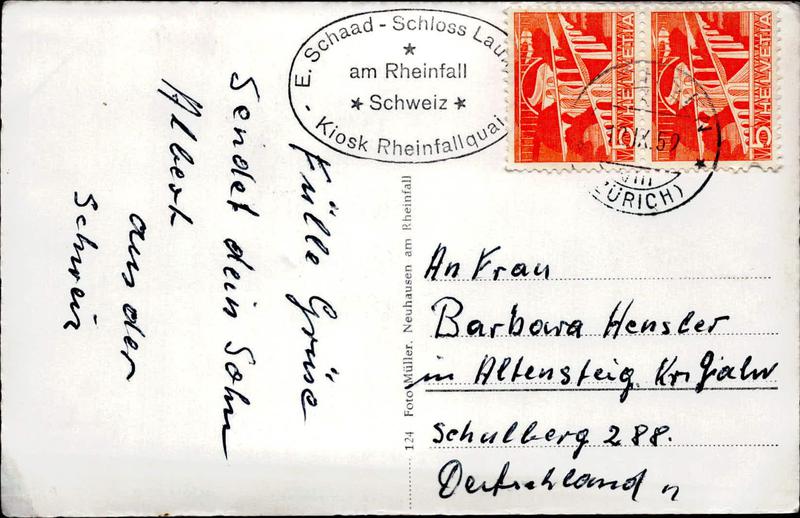 E. Schaad - Schloss Lau
am Rheinfall
Schweiz
Kiosk Rheinfallquai
HELVETIA
5
HELVETIA
5
IX.50
ZÜRICH)
Fülle Grüse
Sendet dein Sohn
Albert
aus der
Schweiz
124 Foto Müller, Neuhausen am Rheinfall
An Frau
Barbara Hensler
in Altensteig Kr.
Schulberg 288.
Deutschland